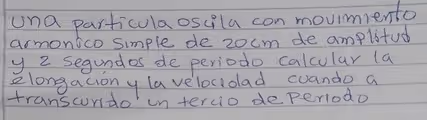 una particula oscila con movimiento
armonico simple de 20cm de amplitud
y 2 segundos de periodo calcular la
elongación y la velocidad cuando a
transcurrido un tercio de Periodo